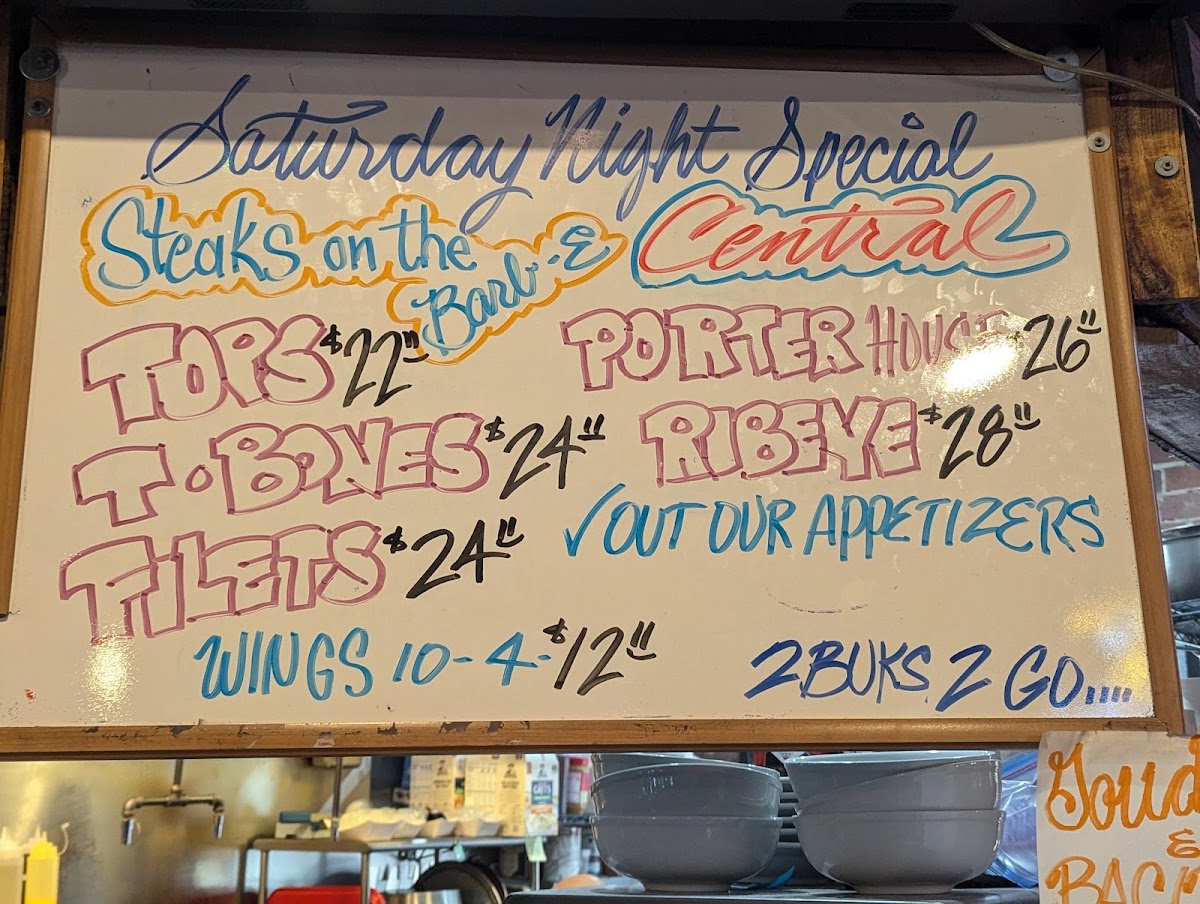 Saturday Night Special
Steaks on the
Barb-E
Central
TOPS $22"
T•BONES $24"
FILETS $24"
PORTER HOUSE 26"
RIBEYE $28"
✓OUT OUR APPETIZERS
WINGS 10-4-$12"
2BUKS 2 GO.....
GRITS
&